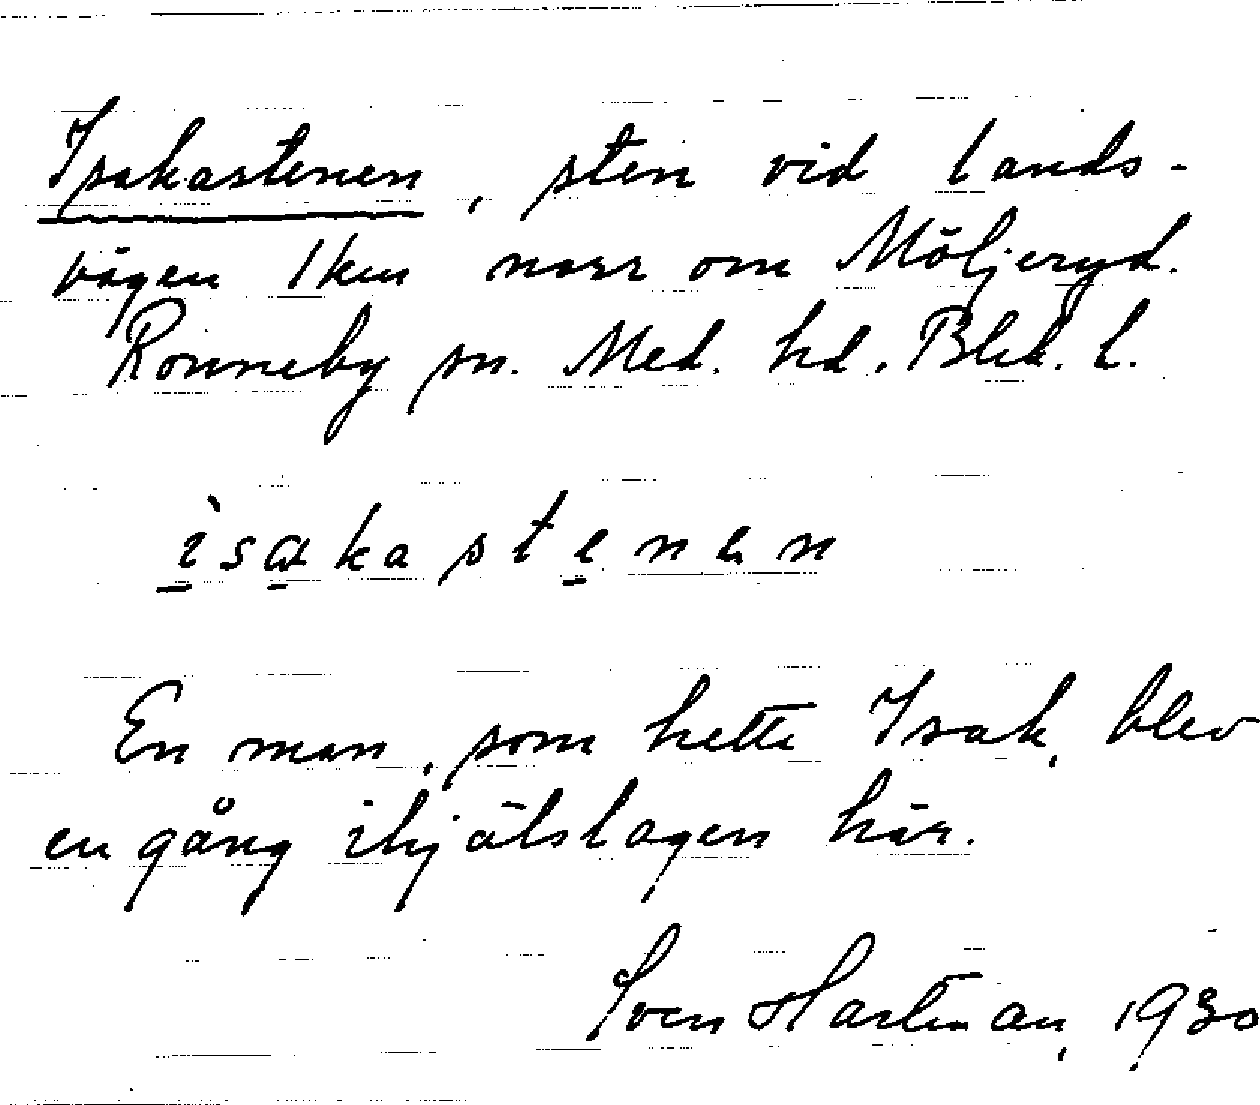 Isakastenen, sten vid lands-
vägen 1 km norr om Möljeryd.
Ronneby sn. Med. hd. Blek. l.
ìsakastenen
En man, som hette Isak, blev
en gång ihjälslagen här.
Sven Hartman, 1930